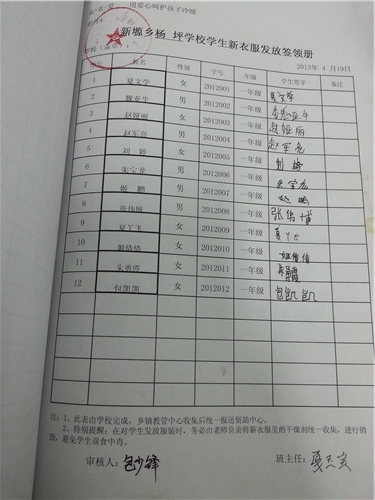 用爱心呵护孩子冷暖
新塬乡杨 坪学校学生新衣服发放签领册
2013年 4 月19日
序号 姓名 性别 学号 年级 学生签字 备注
1 夏文学 女 2012001 一年级 夏文学
2 魏亚生 男 2012002 一年级
3 赵娅丽 女 2012003 一年级 赵娅丽
4 赵军亮 男 2012004 一年级 赵军亮
5 刘 婷 女 2012005 一年级 刘婷
6 朱宝龙 男 2012006 一年级
7 姬 鹏 男 2012007 一年级
8 张伟博 男 2012008 一年级 张伟博
9 夏丫飞 女 2012009 一年级 夏丫飞
10 姬倩倩 女 2012010 一年级 姬倩倩
11 朱勇霞 女 2012011 一年级
12 包凯凯 女 2012012 一年级 包凯凯
注：1、此表由学校完成，乡镇教管中心收集后统一报送资助中心。
2、特别提醒：在对学生发放服装时，务必由老师负责将新衣服里的干燥剂统一收集，进行销
毁，避免学生误食中毒。
审核人：包少锋 班主任：